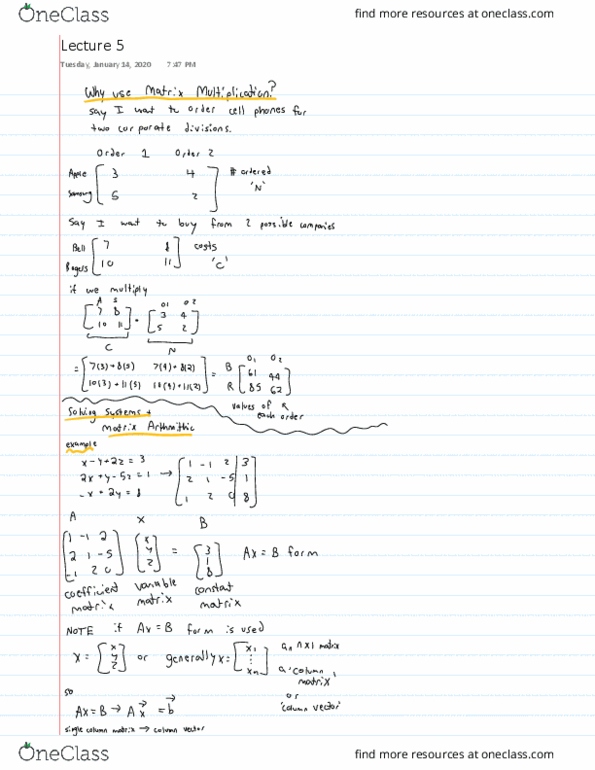 OneClass find more resources at oneclass.com
Lecture 5
Tuesday, January 14, 2020 7:47 PM
Why use Matrix Multiplication?
say I want to order cell phones for
two corporate divisions.
Order 1 Order 2
Apple [ 3 4 ] # ordered
Samsung [ 5 2 ] 'N'
Say I want to buy from 2 possible companies
Bell [ 7 8 ] costs
Rogers [ 10 11 ] 'C'
if we multiply
A S O1 O2
[ 7 8 ] • [ 3 4 ]
[ 10 11 ] [ 5 2 ]
C N
O1 O2
= [ 7(3)+8(5) 7(4)+8(2) ] = B [ 61 44 ]
[ 10(3)+11(5) 10(4)+11(2) ] R [ 85 62 ]
values of
each order
Solving Systems +
Matrix Arithmitic
example
x-y+2z = 3
2x+y-5z = 1 → [ 1 -1 2 | 3 ]
-x + 2y = 8 [ 2 1 -5 | 1 ]
[ 1 2 0 | 8 ]
A X B
[ 1 -1 2 ] [ x ] [ 3 ]
[ 2 1 -5 ] [ y ] = [ 1 ] Ax = B form
[ -1 2 0 ] [ z ] [ 8 ]
coefficient variable constant
matrix matrix matrix
NOTE if Ax = B form is used
x = [ x y z ] or generally x = [ x1 ⋮ xn ] an nx1 matrix
a 'column matrix'
or
'column vector'
so
Ax = B → A x⃗ = b⃗
single column matrix → column vector
OneClass find more resources at oneclass.com